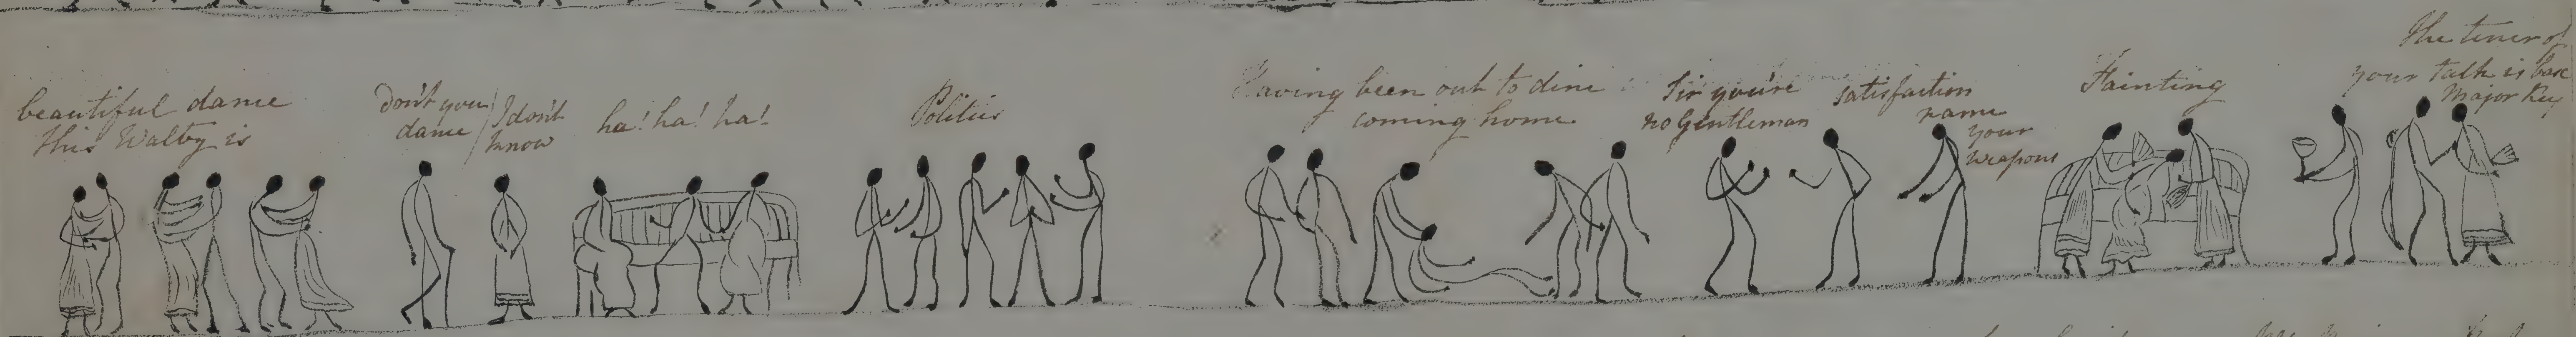 beautiful dance
this Waltz is
Don't you
dance
I don't
know
ha! ha! ha!
Politics
Having been out to dine
coming home
Sir you're
no Gentleman
satisfaction
name
your
weapons
Fainting
The tenor of
your talk is base
Major Key